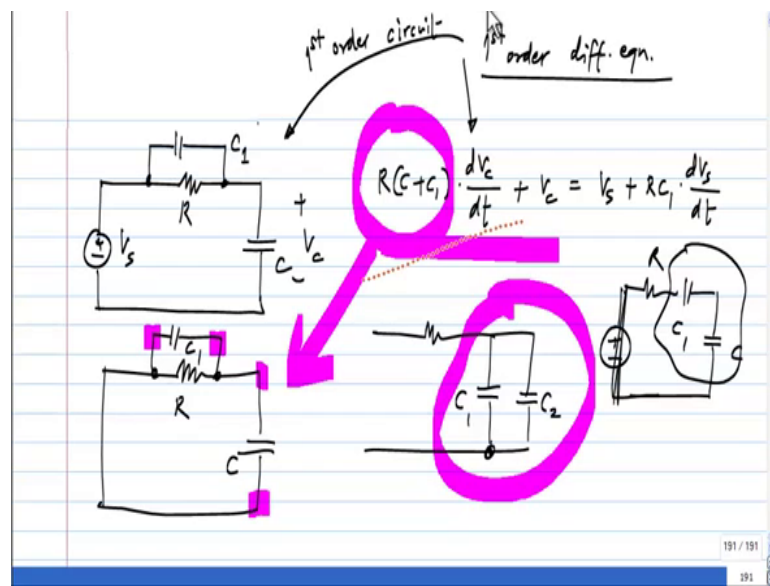 1st order circuit
1st order diff. eqn.
C1
R(C+C1) · dVc/dt + Vc = Vs + RC1 · dVs/dt
R
+
Vs
C
Vc
-
R
C1
C
C1
R
C
C1
C2
191 / 191
191